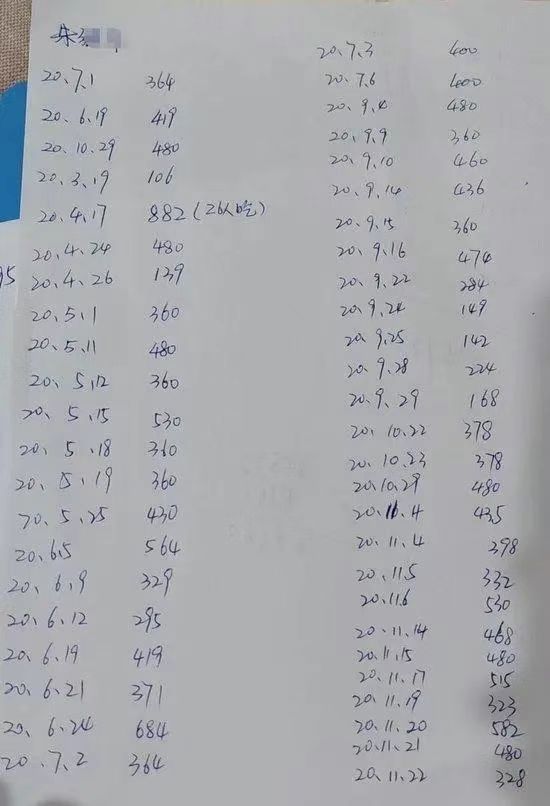 朱
20.7.1 364
20.6.19 419
20.10.29 480
20.3.19 106
20.4.17 882(2人吃)
20.4.24 480
95 20.4.26 139
20.5.1 360
20.5.11 480
20.5.12 360
20.5.15 530
20.5.18 360
20.5.19 360
20.5.25 430
20.6.5 564
20.6.9 329
20.6.12 295
20.6.19 419
20.6.21 371
20.6.24 684
20.7.2 364
20.7.3 400
20.7.6 400
20.9.4 480
20.9.9 360
20.9.10 460
20.9.14 436
20.9.15 360
20.9.16 474
20.9.22 284
20.9.24 149
20.9.25 142
20.9.28 224
20.9.29 168
20.10.22 378
20.10.23 378
20.10.29 480
20.11.4 435
20.11.4 398
20.11.5 332
20.11.6 530
20.11.14 468
20.11.15 480
20.11.17 515
20.11.19 323
20.11.20 582
20.11.21 480
20.11.22 328